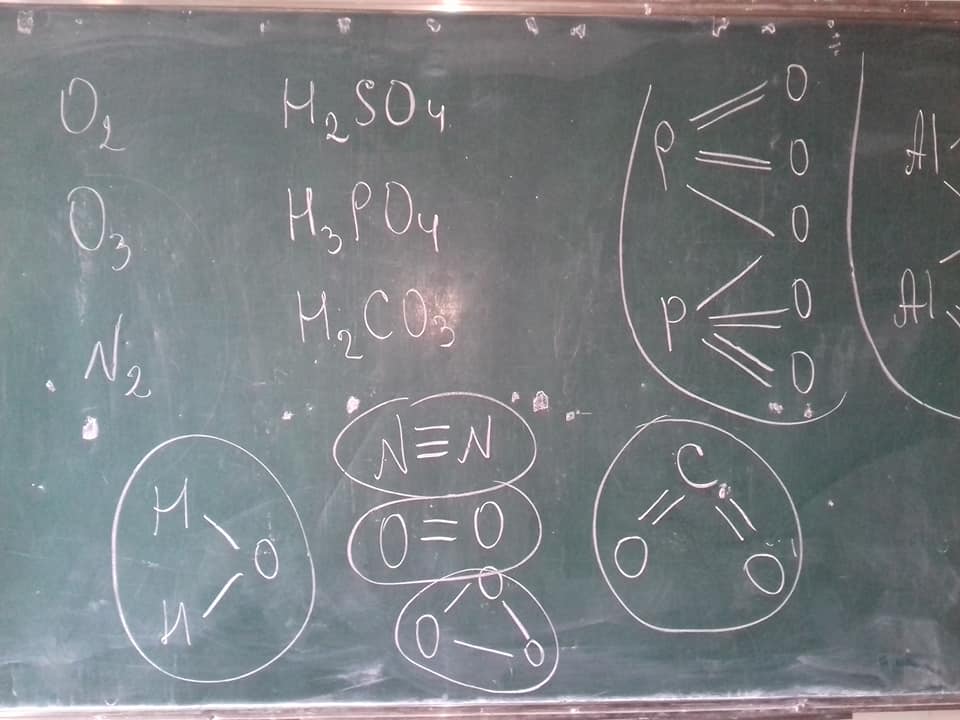 O₂
O₃
N₂
H₂SO₄
H₃PO₄
H₂CO₃
P O
O
O
P O
O
Al
Al
H
O
H
N≡N
O=O
O
O O
C
O O